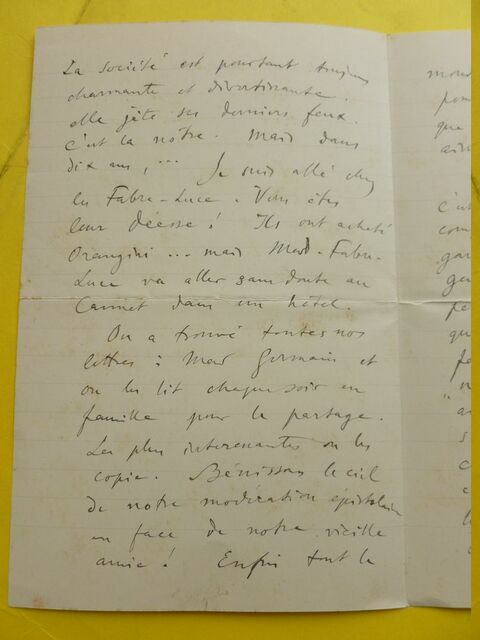 La société est pourtant toujours
charmante et divertissante.
elle jète ses derniers feux.
c'est la nôtre. Mais dans
dix ans, ... Je suis allé chez
les Fabre-Luce. Vous êtes
leur déesse! Ils ont acheté
... mais Mad. Fabre-
Luce va aller sans doute au
Cannet dans un hôtel.
On a trouvé toutes nos
lettres à Mad Germain et
on les lit chaque soir en
famille pour le partage.
Les plus intéressantes on les
copie. Bénissons le ciel
de notre modération épistolaire
en face de notre vieille
amie! Enfin tout le
que
c'est
qu